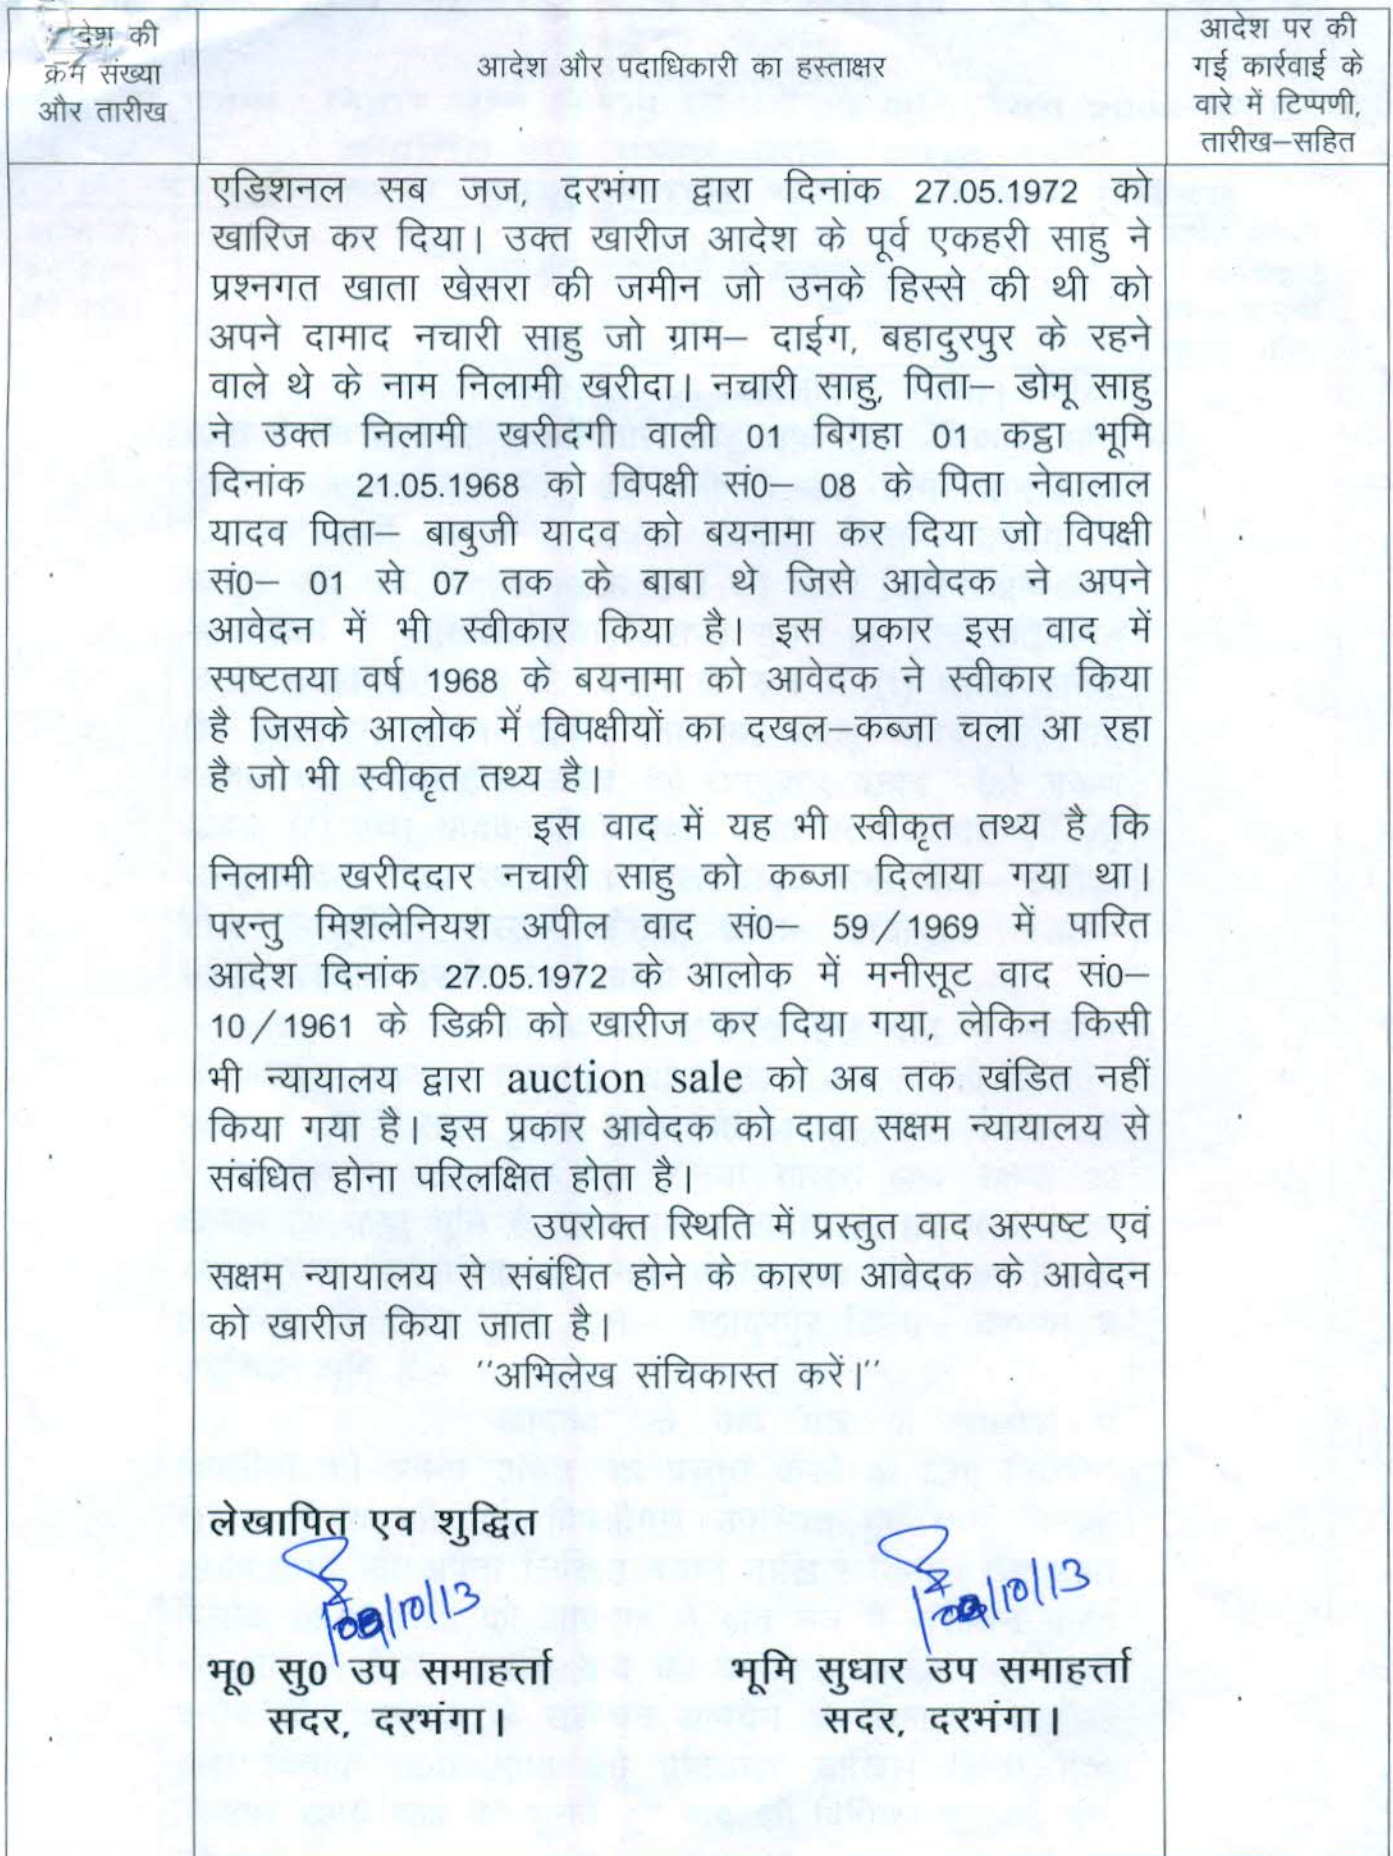 देश की
क्रम संख्या
और तारीख
आदेश और पदाधिकारी का हस्ताक्षर
आदेश पर की
गई कार्रवाई के
वारे में टिप्पणी,
तारीख–सहित
एडिशनल सब जज, दरभंगा द्वारा दिनांक 27.05.1972 को
खारिज कर दिया। उक्त खारीज आदेश के पूर्व एकहरी साहु ने
प्रश्नगत खाता खेसरा की जमीन जो उनके हिस्से की थी को
अपने दामाद नचारी साहु जो ग्राम– दाईग, बहादुरपुर के रहने
वाले थे के नाम निलामी खरीदा। नचारी साहु, पिता– डोमू साहु
ने उक्त निलामी खरीदगी वाली 01 बिगहा 01 कट्ठा भूमि
दिनांक 21.05.1968 को विपक्षी सं0– 08 के पिता नेवालाल
यादव पिता– बाबुजी यादव को बयनामा कर दिया जो विपक्षी
सं0– 01 से 07 तक के बाबा थे जिसे आवेदक ने अपने
आवेदन में भी स्वीकार किया है। इस प्रकार इस वाद में
स्पष्टतया वर्ष 1968 के बयनामा को आवेदक ने स्वीकार किया
है जिसके आलोक में विपक्षीयों का दखल–कब्जा चला आ रहा
है जो भी स्वीकृत तथ्य है।
इस वाद में यह भी स्वीकृत तथ्य है कि
निलामी खरीददार नचारी साहु को कब्जा दिलाया गया था।
परन्तु मिशलेनियश अपील वाद सं0– 59/1969 में पारित
आदेश दिनांक 27.05.1972 के आलोक में मनीसूट वाद सं0–
10/1961 के डिक्री को खारीज कर दिया गया, लेकिन किसी
भी न्यायालय द्वारा auction sale को अब तक खंडित नहीं
किया गया है। इस प्रकार आवेदक को दावा सक्षम न्यायालय से
संबंधित होना परिलक्षित होता है।
उपरोक्त स्थिति में प्रस्तुत वाद अस्पष्ट एवं
सक्षम न्यायालय से संबंधित होने के कारण आवेदक के आवेदन
को खारीज किया जाता है।
''अभिलेख संचिकास्त करें।''
लेखापित एवं शुद्धित
/10/13
/10/13
भू0 सु0 उप समाहर्त्ता
सदर, दरभंगा।
भूमि सुधार उप समाहर्त्ता
सदर, दरभंगा।